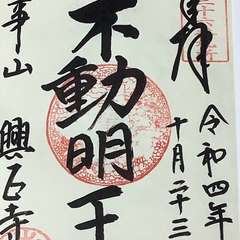 奉拝
令和四年
十月二十三
不動明王
事山 興正寺